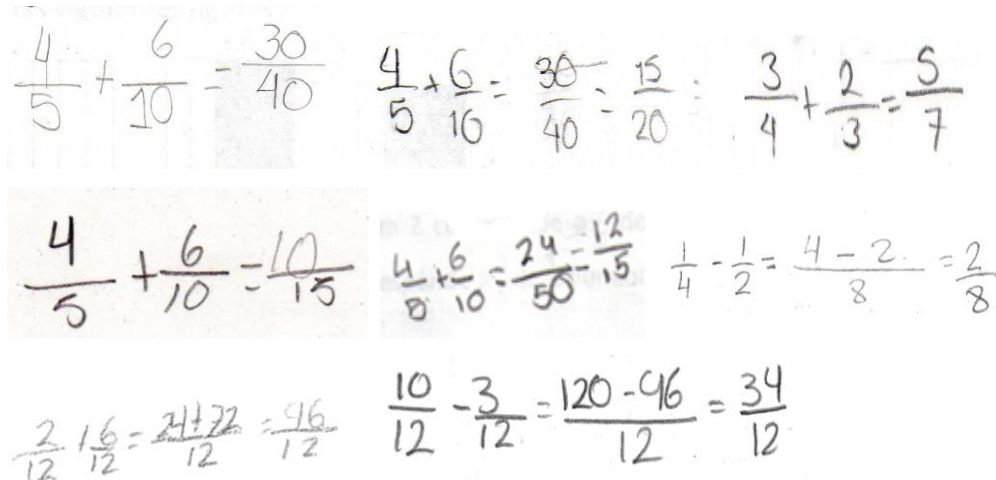 4/5 + 6/10 = 30/40
4/5 + 6/10 = 30/40 = 15/20 =
3/4 + 2/3 = 5/7
4/5 + 6/10 = 10/15
4/5 + 6/10 = 24/50 = 12/15
1/4 - 1/2 = 4-2/8 = 2/8
2/12 + 6/12 = 24+72/12 = 96/12
10/12 - 3/12 = 120-96/12 = 34/12